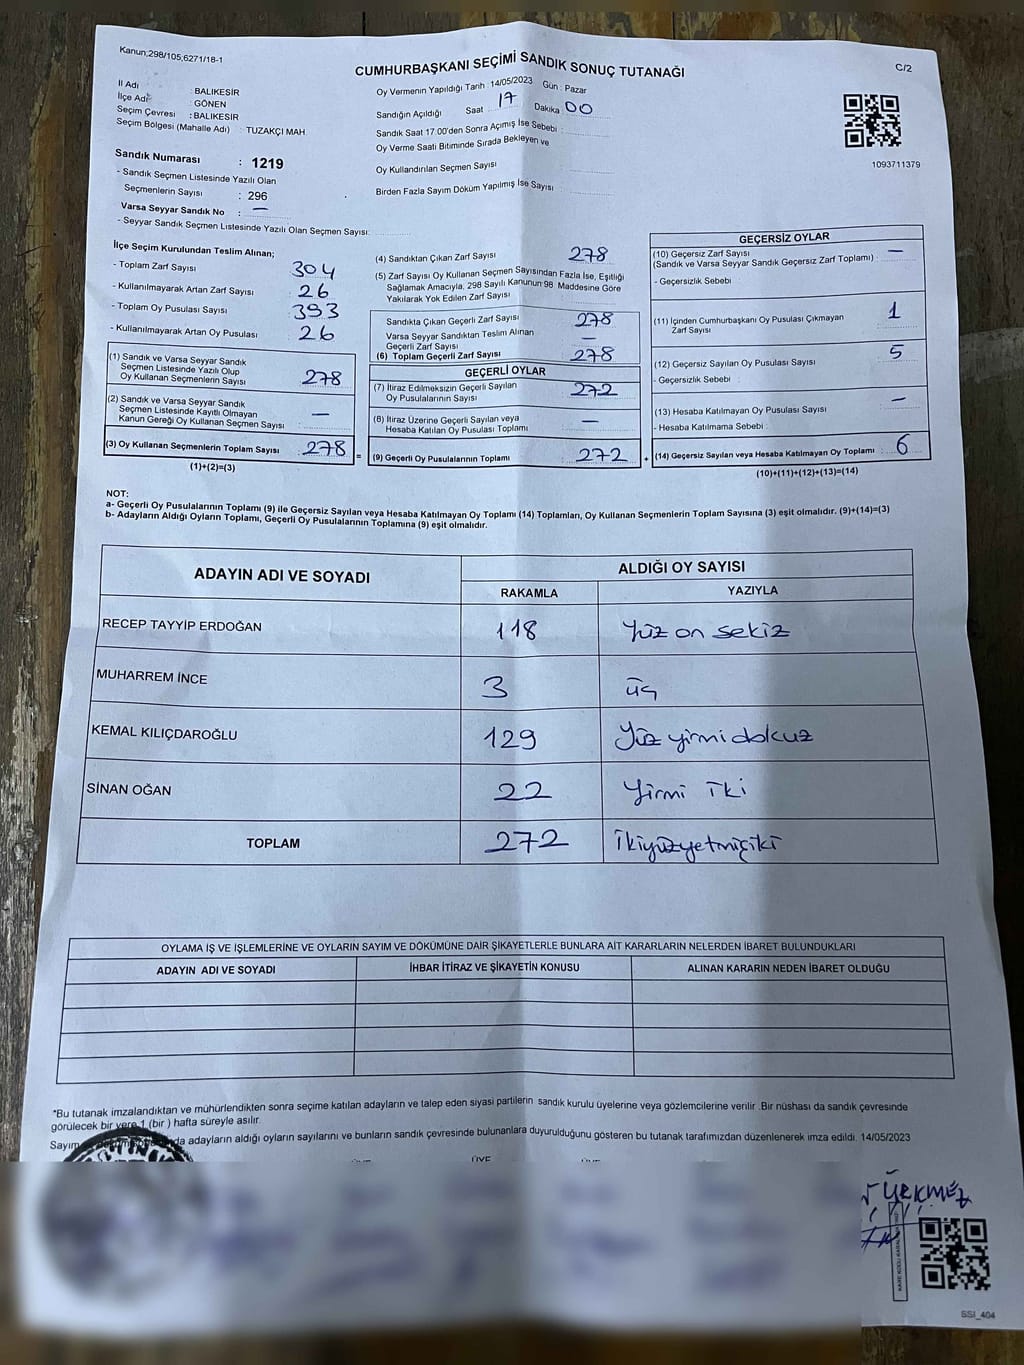 Kanun;298/105,6271/18-1
CUMHURBAŞKANI SEÇİMİ SANDIK SONUÇ TUTANAĞI
C/2
İl Adı : BALIKESİR
İlçe Adı : GÖNEN
Seçim Çevresi : BALIKESİR
Seçim Bölgesi (Mahalle Adı) : TUZAKÇI MAH.
Sandık Numarası : 1219
- Sandık Seçmen Listesinde Yazılı Olan
Seçmenlerin Sayısı : 296
Varsa Seyyar Sandık No : —
- Seyyar Sandık Seçmen Listesinde Yazılı Olan Seçmen Sayısı:
Oy Vermenin Yapıldığı Tarih : 14/05/2023 Gün : Pazar
Sandığın Açıldığı Saat 17 Dakika 00
Sandık Saat 17.00'den Sonra Açımış İse Sebebi :
Oy Verme Saati Bitiminde Sırada Bekleyen ve
Oy Kullandırılan Seçmen Sayısı
Birden Fazla Sayım Döküm Yapılmış İse Sayısı :
1093711379
İlçe Seçim Kurulundan Teslim Alınan;
- Toplam Zarf Sayısı : 304
- Kullanılmayarak Artan Zarf Sayısı : 26
- Toplam Oy Pusulası Sayısı : 393
- Kullanılmayarak Artan Oy Pusulası : 26
(1) Sandık ve Varsa Seyyar Sandık
Seçmen Listesinde Yazılı Olup
Oy Kullanan Seçmenlerin Sayısı : 278
(2) Sandık ve Varsa Seyyar Sandık
Seçmen Listesinde Kayıtlı Olmayan
Kanun Gereği Oy Kullanan Seçmen Sayısı : —
(3) Oy Kullanan Seçmenlerin Toplam Sayısı : 278
(1)+(2)=(3)
(4) Sandıktan Çıkan Zarf Sayısı : 278
(5) Zarf Sayısı Oy Kullanan Seçmen Sayısından Fazla İse, Eşitliği
Sağlamak Amacıyla, 298 Sayılı Kanunun 98. Maddesine Göre
Yakılarak Yok Edilen Zarf Sayısı :
Sandıkta Çıkan Geçerli Zarf Sayısı : 278
Varsa Seyyar Sandıktan Teslim Alınan
Geçerli Zarf Sayısı : —
(6) Toplam Geçerli Zarf Sayısı : 278
GEÇERLİ OYLAR
(7) İtiraz Edilmeksizin Geçerli Sayılan
Oy Pusulalarının Sayısı : 272
(8) İtiraz Üzerine Geçerli Sayılan veya
Hesaba Katılan Oy Pusulası Toplamı : —
= (9) Geçerli Oy Pusulalarının Toplamı : 272
GEÇERSİZ OYLAR
(10) Geçersiz Zarf Sayısı
(Sandık ve Varsa Seyyar Sandık Geçersiz Zarf Toplamı) : —
- Geçersizlik Sebebi :
(11) İçinden Cumhurbaşkanı Oy Pusulası Çıkmayan
Zarf Sayısı : 1
(12) Geçersiz Sayılan Oy Pusulası Sayısı : 5
- Geçersizlik Sebebi :
(13) Hesaba Katılmayan Oy Pusulası Sayısı : —
- Hesaba Katılmama Sebebi :
+ (14) Geçersiz Sayılan veya Hesaba Katılmayan Oy Toplamı : 6
(10)+(11)+(12)+(13)=(14)
NOT:
a- Geçerli Oy Pusulalarının Toplamı (9) ile Geçersiz Sayılan veya Hesaba Katılmayan Oy Toplamı (14) Toplamları, Oy Kullanan Seçmenlerin Toplam Sayısına (3) eşit olmalıdır. (9)+(14)=(3)
b- Adayların Aldığı Oyların Toplamı, Geçerli Oy Pusulalarının Toplamına (9) eşit olmalıdır.
ADAYIN ADI VE SOYADI ALDIĞI OY SAYISI
RAKAMLA YAZIYLA
RECEP TAYYİP ERDOĞAN 118 Yüz on sekiz
MUHARREM İNCE 3 üç
KEMAL KILIÇDAROĞLU 129 Yüz yirmi dokuz
SİNAN OĞAN 22 Yirmi iki
TOPLAM 272 İkiyüzyetmişiki
OYLAMA İŞ VE İŞLEMLERİNE VE OYLARIN SAYIM VE DÖKÜMÜNE DAİR ŞİKAYETLERLE BUNLARA AİT KARARLARIN NELERDEN İBARET BULUNDUKLARI
ADAYIN ADI VE SOYADI İHBAR İTİRAZ VE ŞİKAYETİN KONUSU ALINAN KARARIN NEDEN İBARET OLDUĞU
*Bu tutanak imzalandıktan ve mühürlendikten sonra seçime katılan adayların ve talep eden siyasi partilerin sandık kurulu üyelerine veya gözlemcilerine verilir .Bir nüshası da sandık çevresinde
görülecek bir yere 1 (bir ) hafta süreyle asılır.
Sayım adayların aldığı oyların sayılarını ve bunların sandık çevresinde bulunanlara duyurulduğunu gösteren bu tutanak tarafımızdan düzenlenerek imza edildi. 14/05/2023
ÜYE
SSI_404